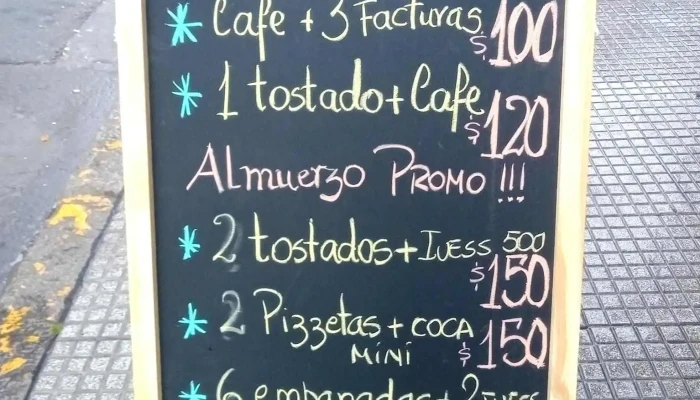 * Cafe + 3 Facturas $100
* 1 tostado + Cafe $120
Almuerzo PROMO !!!
* 2 tostados + Ivess 500 $150
* 2 Pizzetas + COCA
MINI $150
* 6 empanadas + 2 Ivess